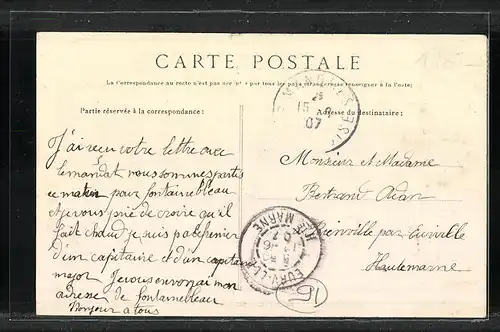 CARTE POSTALE
La Correspondance au recto n'est pas par tous les pays étrangers se renseigner à la Poste
Partie réservée à la correspondance:
Adresse du destinataire:
15
07
OISE
J'ai reçu votre lettre avec
le mandat nous sommes partis
ce matin pour fontainebleau
et je vous prie de croire qu'il
fait chaud je suis palfernier
d'un capitaine et d'un capitaine
major Je vous envoirai mon
adresse de fontainebleau
Bonjour a tous
Monsieur et Madame
Bertrand
par Eurville
Haute marne
EURVILLE
HTE MARNE